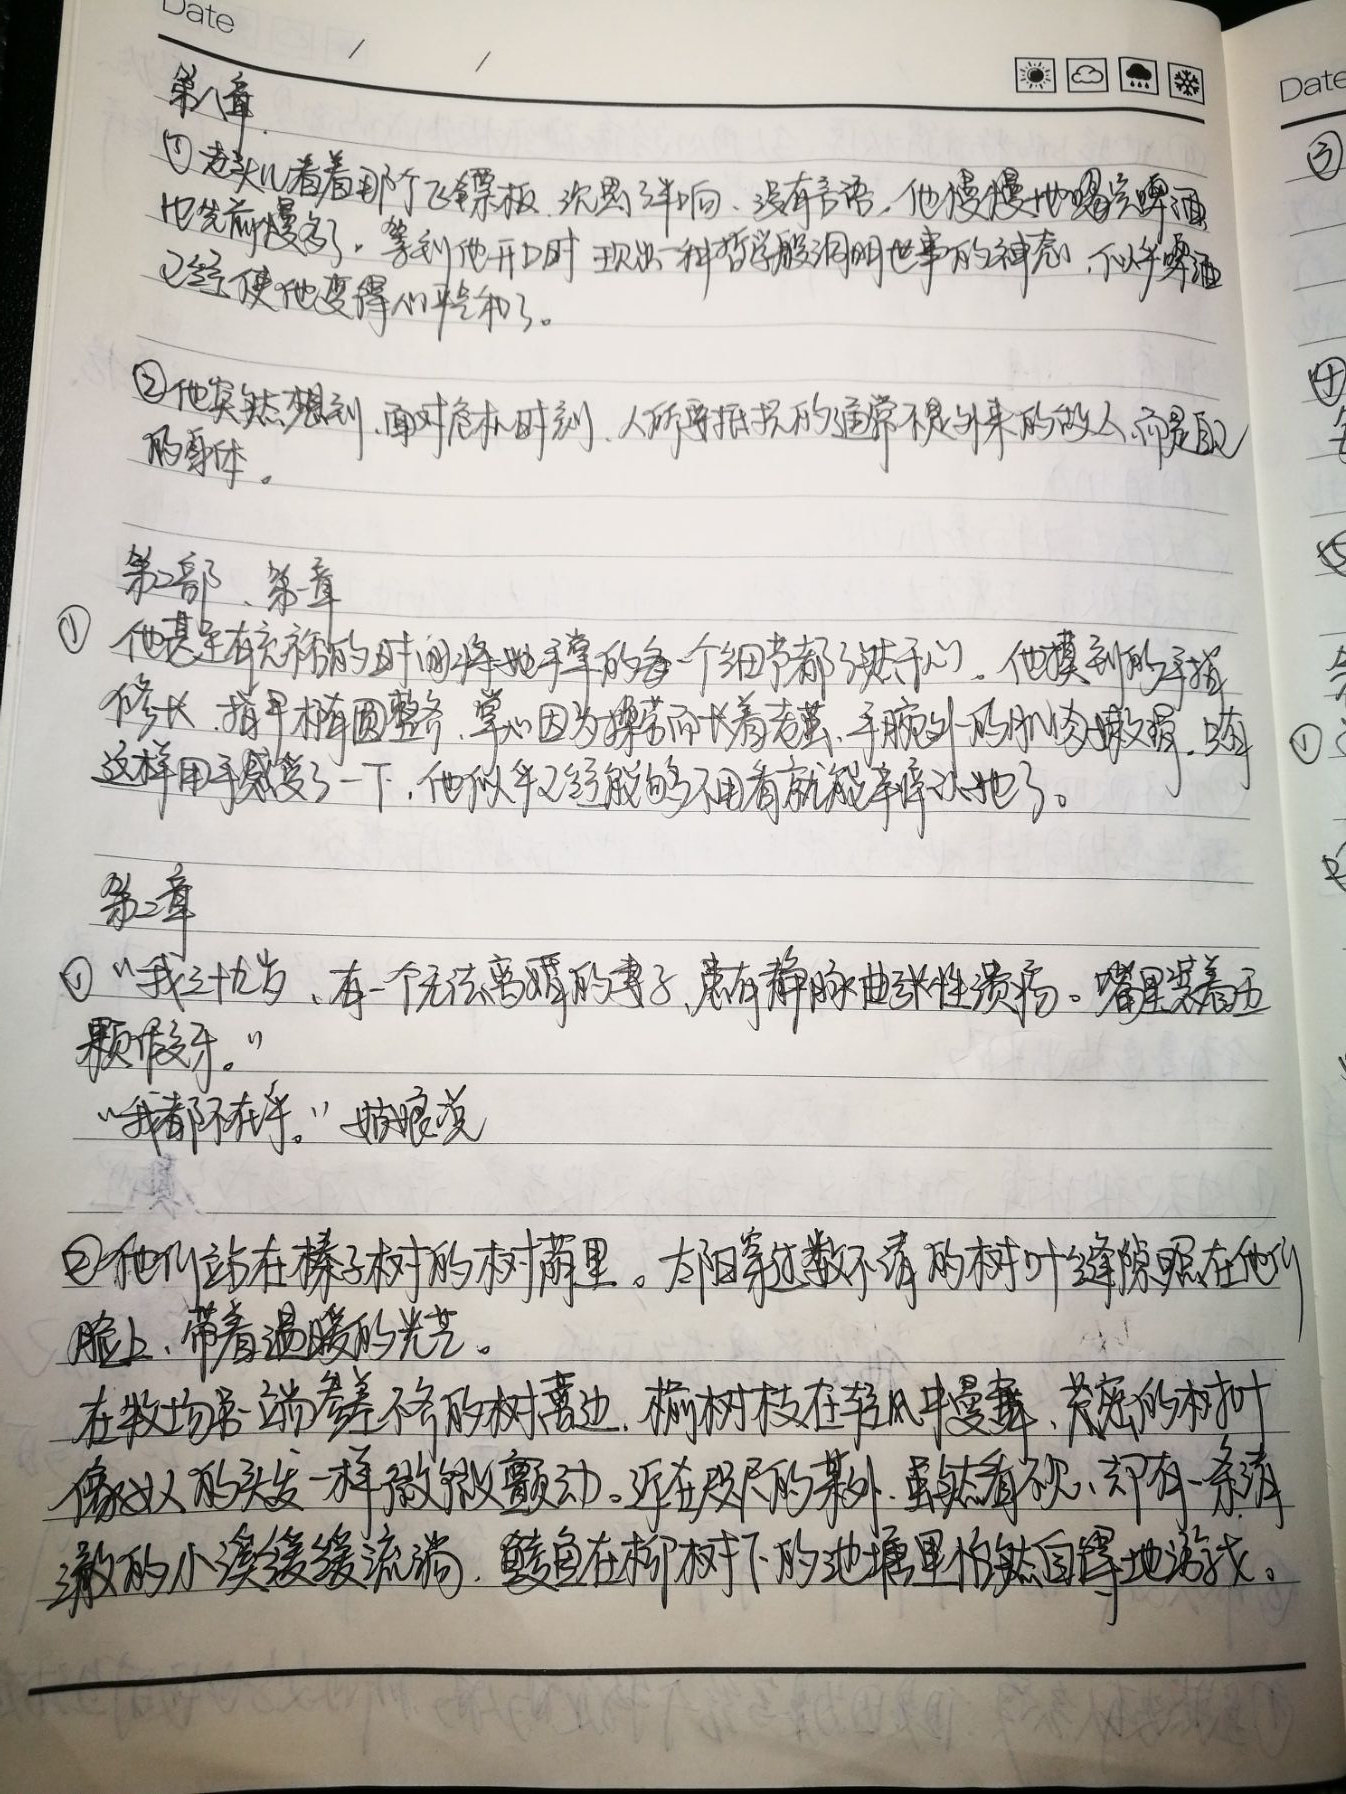 Date / /
第八章
①老头儿看着那个飞镖板、沉思半晌、没有言语。他慢慢地啜着啤酒
比先前慢多了。等到他开口时 现出一种哲学般洞明世事的神态、似乎啤酒
已经使他变得心平气和了。
②他突然想到、面对危机时刻、人所要抵抗的通常不是外来的敌人、而是自己
的身体。
第二部、第一章
① 他甚至有充裕的时间将她手掌的每一个细节都了然于心。他摸到的手指
修长、指甲椭圆整齐、掌心因为操劳而长着老茧、手腕外的肌肉嫩滑。只有
这样用手感受了一下、他似乎已经能够不用看就能辨认她了。
第二章
① “我三十九岁、有一个无法离婚的妻子、患有静脉曲张性溃疡。嘴里装着五
颗假牙。”
“我都不在乎。”姑娘说
②他们站在榛子树的树荫里。太阳穿过数不清的树叶缝隙照在他们
脸上、带着温暖的光芒。
在牧场另一端参差不齐的树篱边、榆树枝在轻风中曼舞、茂密的树叶
像女人的头发一样微微颤动。近在咫尺的某处、虽然看不见、却有一条清
澈的小溪缓缓流淌、鲮鱼在柳树下的池塘里怡然自得地游戏。
Date
③
④
⑤
①